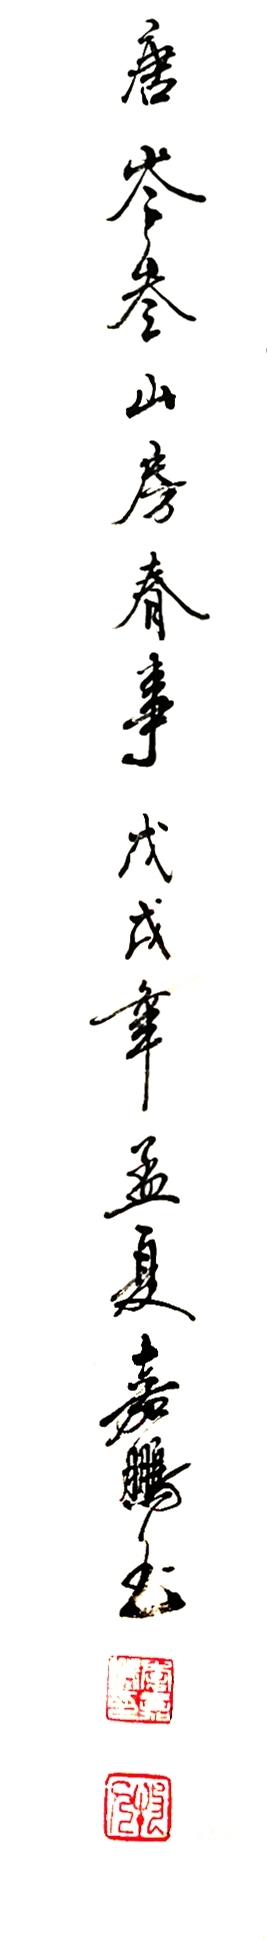 唐岑參山房春事 戊戌年孟夏嘉鵬书